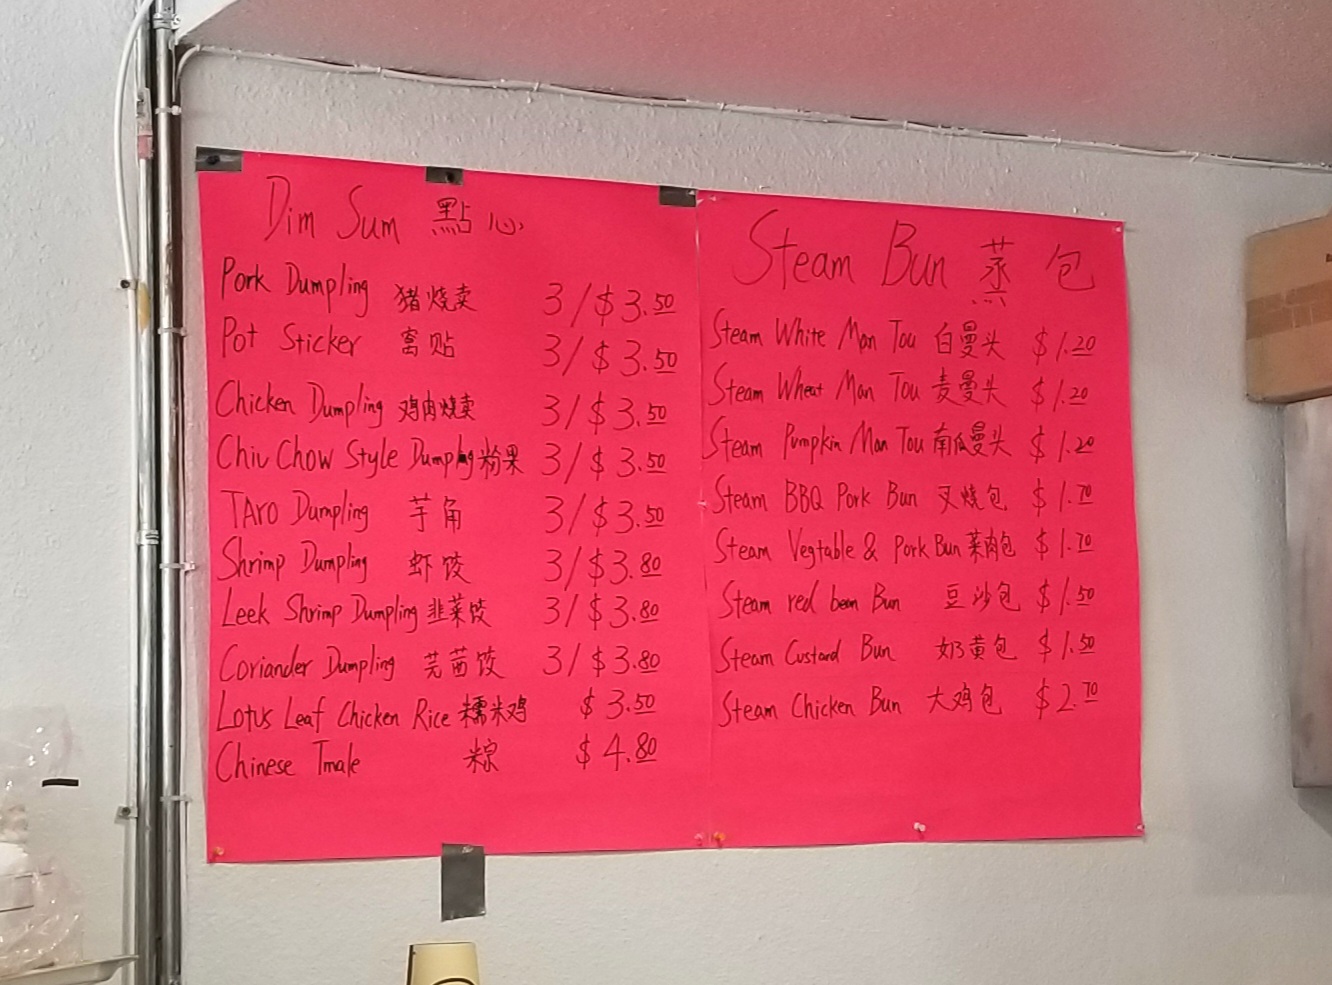 Dim Sum 點心
Pork Dumpling 猪烧卖 3/$3.50
Pot Sticker 窩贴 3/$3.50
Chicken Dumpling 鸡肉烧卖 3/$3.50
Chiu Chow Style Dumpling 粉果 3/$3.50
TAro Dumpling 芋角 3/$3.50
Shrimp Dumpling 虾饺 3/$3.80
Leek Shrimp Dumpling 韭菜饺 3/$3.80
Coriander Dumpling 芫茜饺 3/$3.80
Lotus Leaf Chicken Rice 糯米鸡 $3.50
Chinese Tmale 粽 $4.80
Steam Bun 蒸包
Steam White Man Tou 白曼头 $1.20
Steam Wheat Man Tou 麦曼头 $1.20
Steam Pumpkin Man Tou 南瓜曼头 $1.20
Steam BBQ Pork Bun 叉烧包 $1.70
Steam Vegtable & Pork Bun 菜肉包 $1.70
Steam red bean Bun 豆沙包 $1.50
Steam Custard Bun 奶黄包 $1.50
Steam Chicken Bun 大鸡包 $2.70